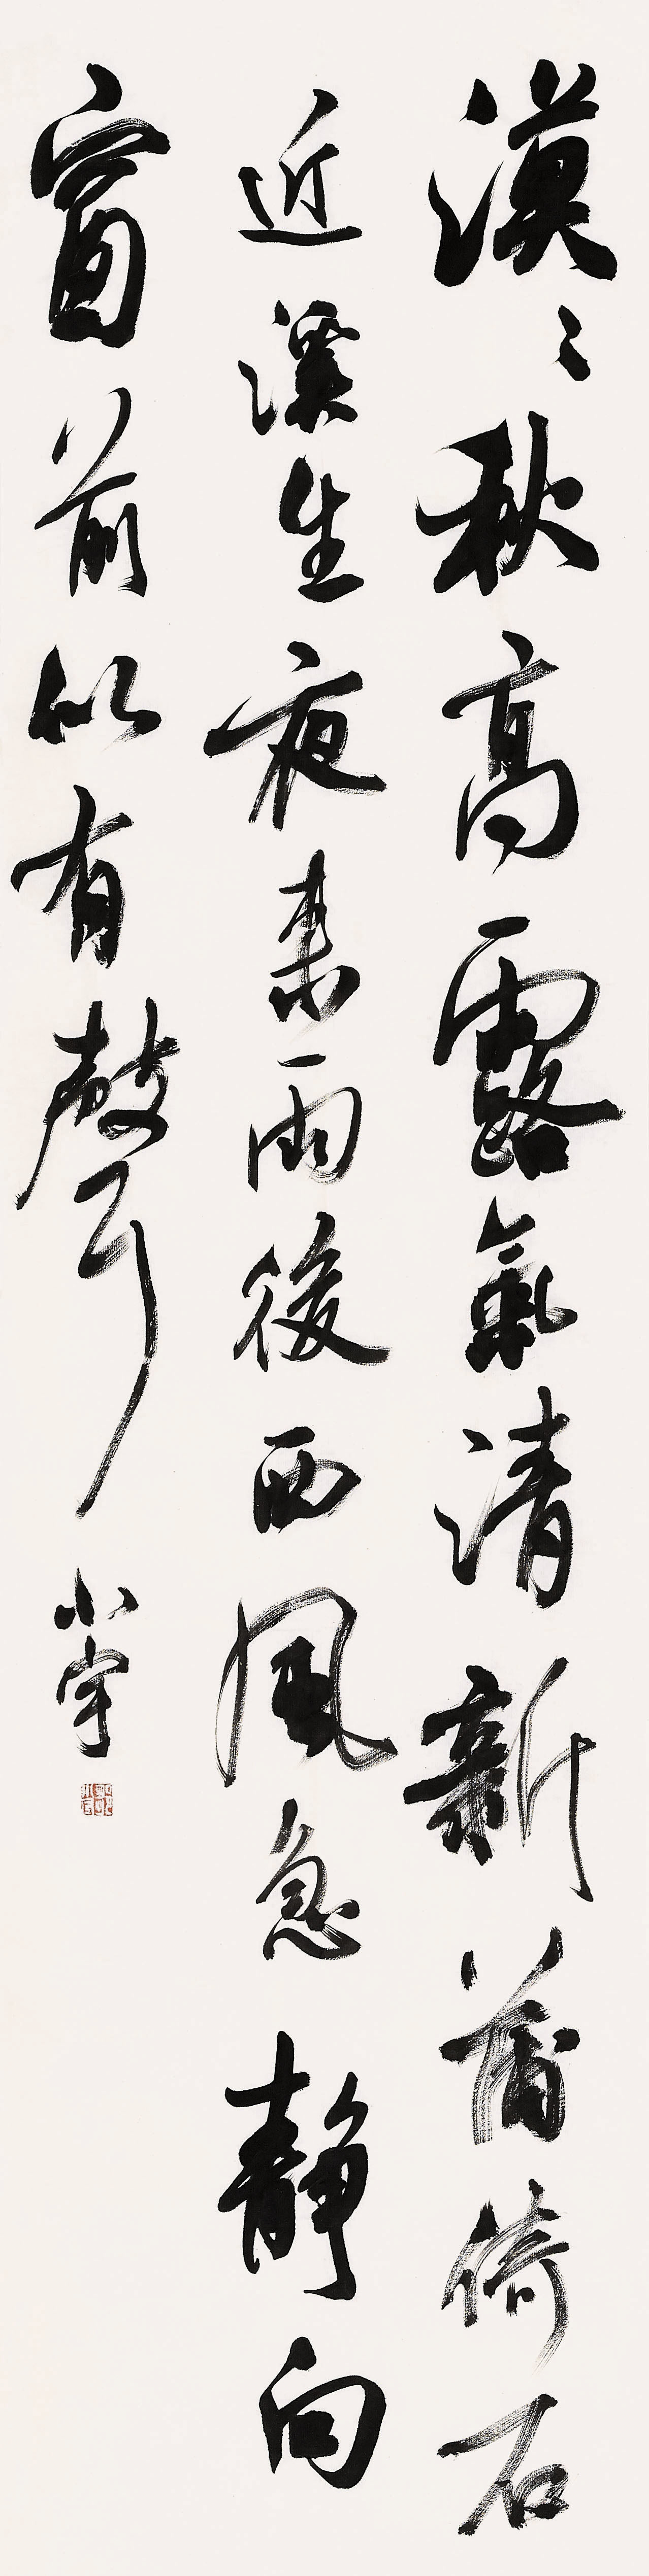 漠〻秋高露氣清新蒲倚石
近溪生夜来雨後西風急静向
窗前似有聲
小宇